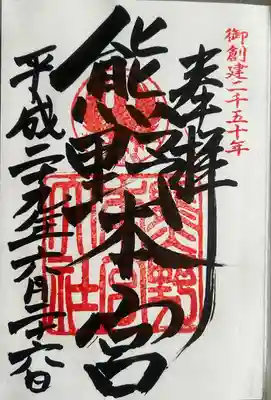 御創建二千五十年
奉拝
熊野本宮
平成二十九年六月二十六日